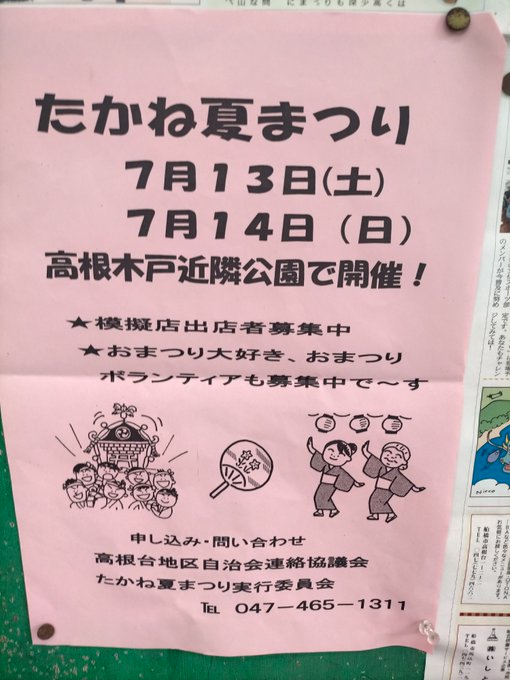 たかね夏まつり
7月13日(土)
7月14日(日)
高根木戸近隣公園で開催!
★模擬店出店者募集中
★おまつり大好き、おまつり
ボランティアも募集中で~す
申し込み・問い合わせ
高根台地区自治会連絡協議会
たかね夏まつり実行委員会
℡ 047-465-1311
Nicco